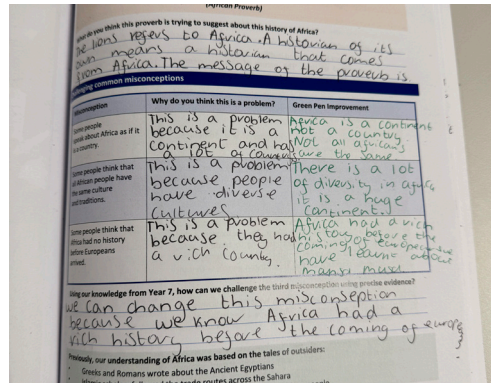 (African Proverb)
do you think this proverb is trying to suggest about this history of Africa?
the lions regers to Africa. A historian of its
own means a historian that comes
from Africa. The message of the proverb is
nging common misconceptions
Misconception
Why do you think this is a problem?
Green Pen Improvement
Some people
speak about Africa as if it
is a country.
This is a problem
because it is a
continent and has
a lot of countries
Africa is a continent
not a country.
Not all africans
are the same
Some people think that
all African people have
the same culture
and traditions.
This is a problem
because people
have diverse
cultures
There is a lot
of diversity in africa
it is a huge
continent.
Some people think that
Africa had no history
before Europeans
arrived.
This is a problem
because they had
a rich country.
Africa had a rich
history before the
coming of europeans
have learnt about
mansa musa
Using our knowledge from Year 7, how can we challenge the third misconception using precise evidence?
we can change this misconseption
because we know Africa had a
rich history before the coming of europe
Previously, our understanding of Africa was based on the tales of outsiders:
Greeks and Romans wrote about the Ancient Egyptians
trade routes across the Sahara